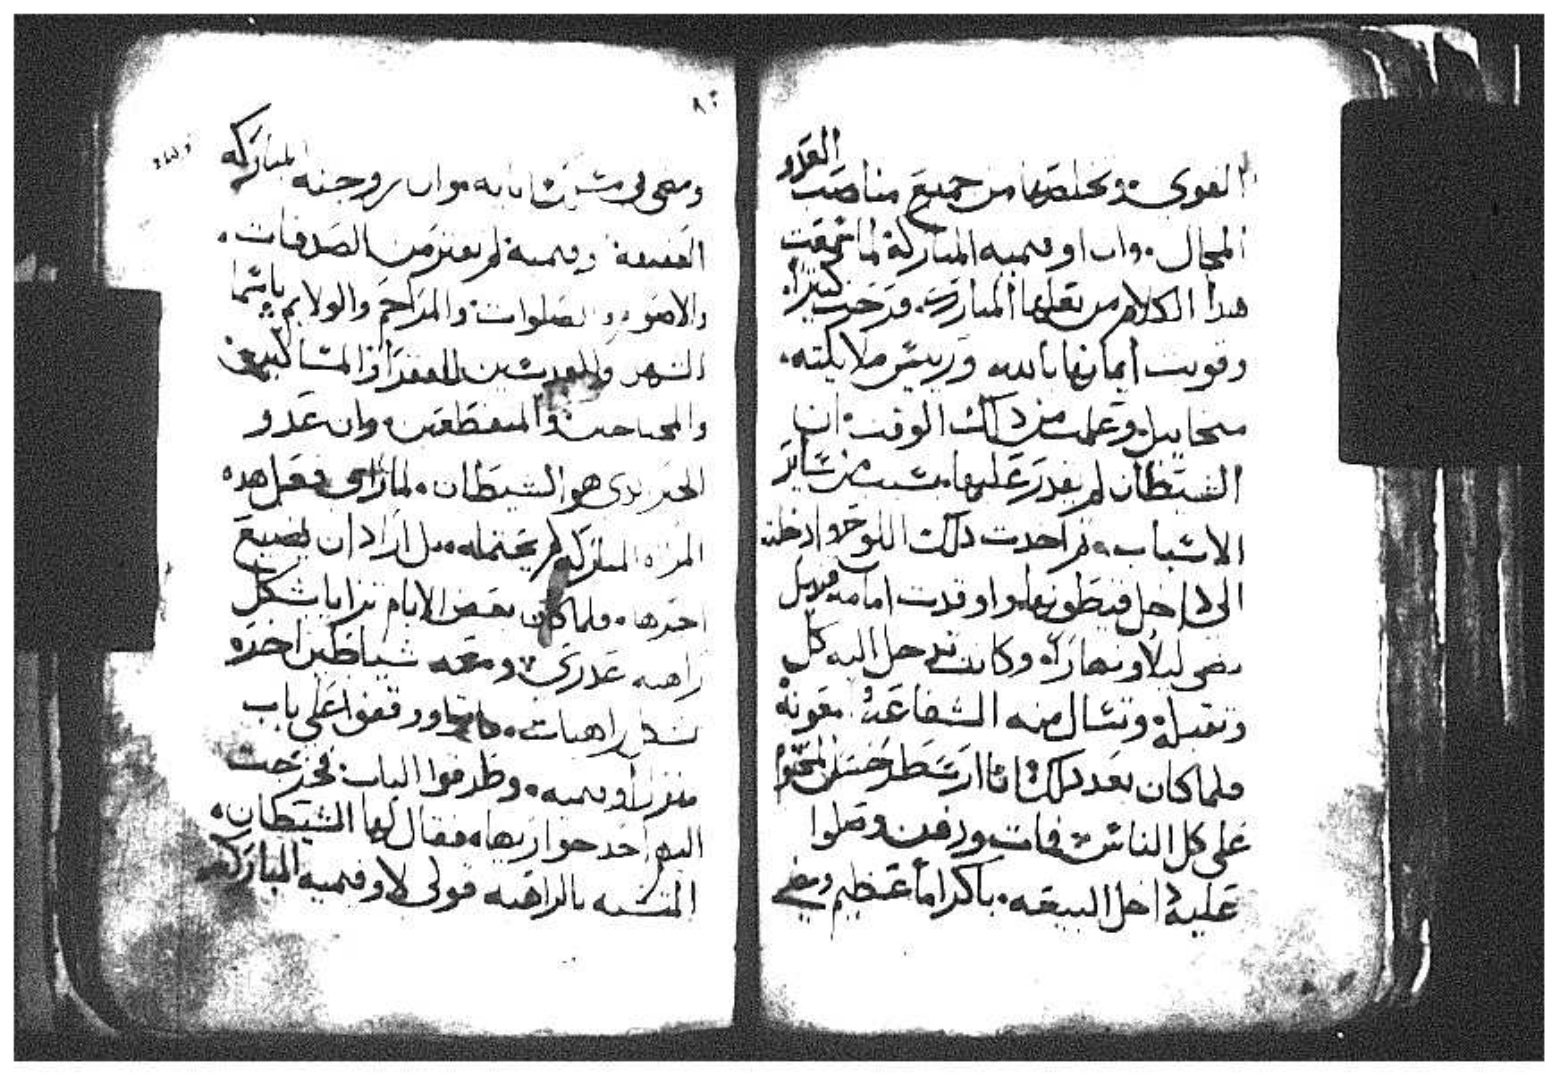 العدو
القوي ويخلصها من جميع مناصب
المحال وان اوفميه المباركة لما سمعت
هدا الكلام من بعلها المبارك فرحت كثيرا
وقويت أيمانها بالله وريس ملايكته
ميخاييل وعلمت من دلك الوقت ان
الشيطان لم يقدر عليها بسبب من ساير
الاسباب ثم اخدت دلك اللوح وادخلته
الى داخل قيطونها واوقدت امامه قنديل
يضى ليلا ونهارا وكانت تدخل اليه كل
وتقبله وتسال منه الشفاعة معونة
فلما كان بعد دلك اتا ارسطرخس المحتوم
على كل الناس فات ودفن وصلوا
علية داخل البيعه باكراما عظيم ومضي
ومضى في بابه وان زوجته المباركه
العفيفة اوفمية لم تفتر من الصدقات
والاصوم والصلوات والمراحم والولايم باسما
الشهر والقديسين للفقرا والمساكين
والمحتاجين والمنقطعين وان عدو
الخير الدي هو الشيطان لما راى فعل هده
المراه المباركه لم يحتمله بل اراد ان يضيع
اجرها فلما كان بعض الايام تزايا بشكل
راهبه عدرى ومعه شياطين اخره
بشكل راهبات وقفوا على باب
منزل أوفميه وطرقوا الباب فخرجت
اليهم احد جوارها فقال لها الشيطان
المتشبه بالراهبه قولى لاوفميه المباركه